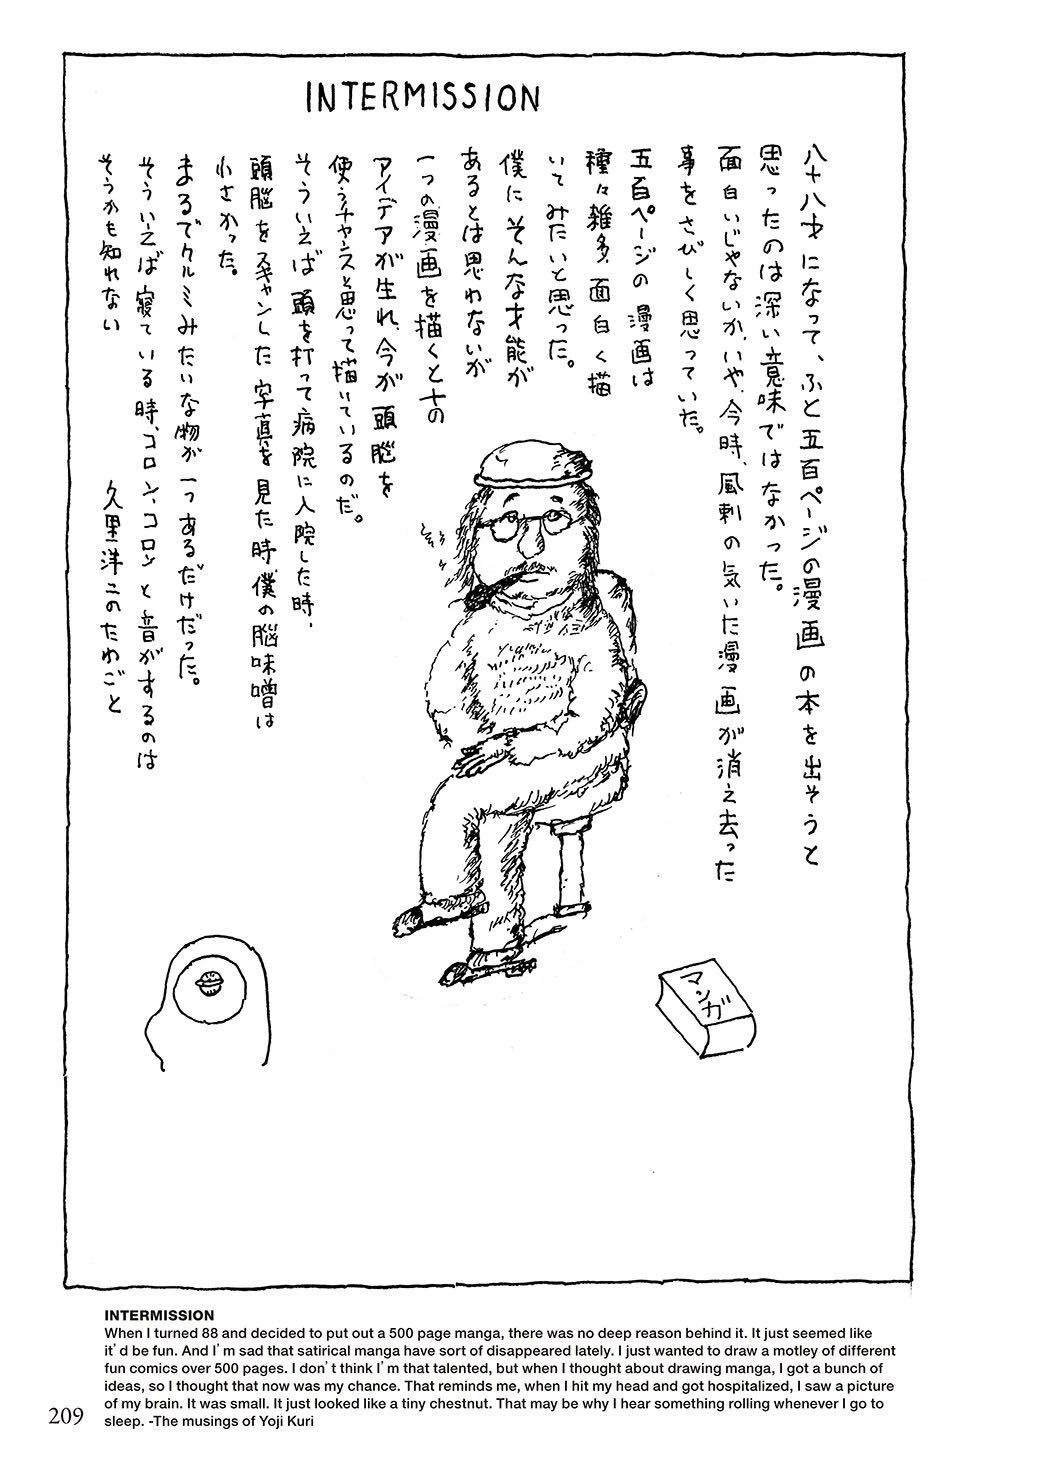 INTERMISSION
八十八才になって、ふと五百ページの漫画の本を出そうと
思ったのは深い意味ではなかった。
面白いじゃないか、いや、今時、風刺の気いた漫画が消え去った
事をさびしく思っていた。
五百ページの漫画は
種々雑多、面白く描
いてみたいと思った。
僕にそんな才能が
あるとは思わないが
一つの漫画を描くと十の
アイデアが生れ、今が頭脳を
使うチャンスと思って描いているのだ。
そういえば頭を打って病院に入院した時、
頭脳をスキャンした写真を見た時僕の脳味噌は
小さかった。
まるでクルミみたいな物が一つあるだけだった。
そういえば寝ている時、コロン、コロンと音がするのは
そうかも知れない
久里洋二のたわごと
マンガ
INTERMISSION
When I turned 88 and decided to put out a 500 page manga, there was no deep reason behind it. It just seemed like
it'd be fun. And I'm sad that satirical manga have sort of disappeared lately. I just wanted to draw a motley of different
fun comics over 500 pages. I don't think I'm that talented, but when I thought about drawing manga, I got a bunch of
ideas, so I thought that now was my chance. That reminds me, when I hit my head and got hospitalized, I saw a picture
of my brain. It was small. It just looked like a tiny chestnut. That may be why I hear something rolling whenever I go to
sleep. -The musings of Yoji Kuri
209